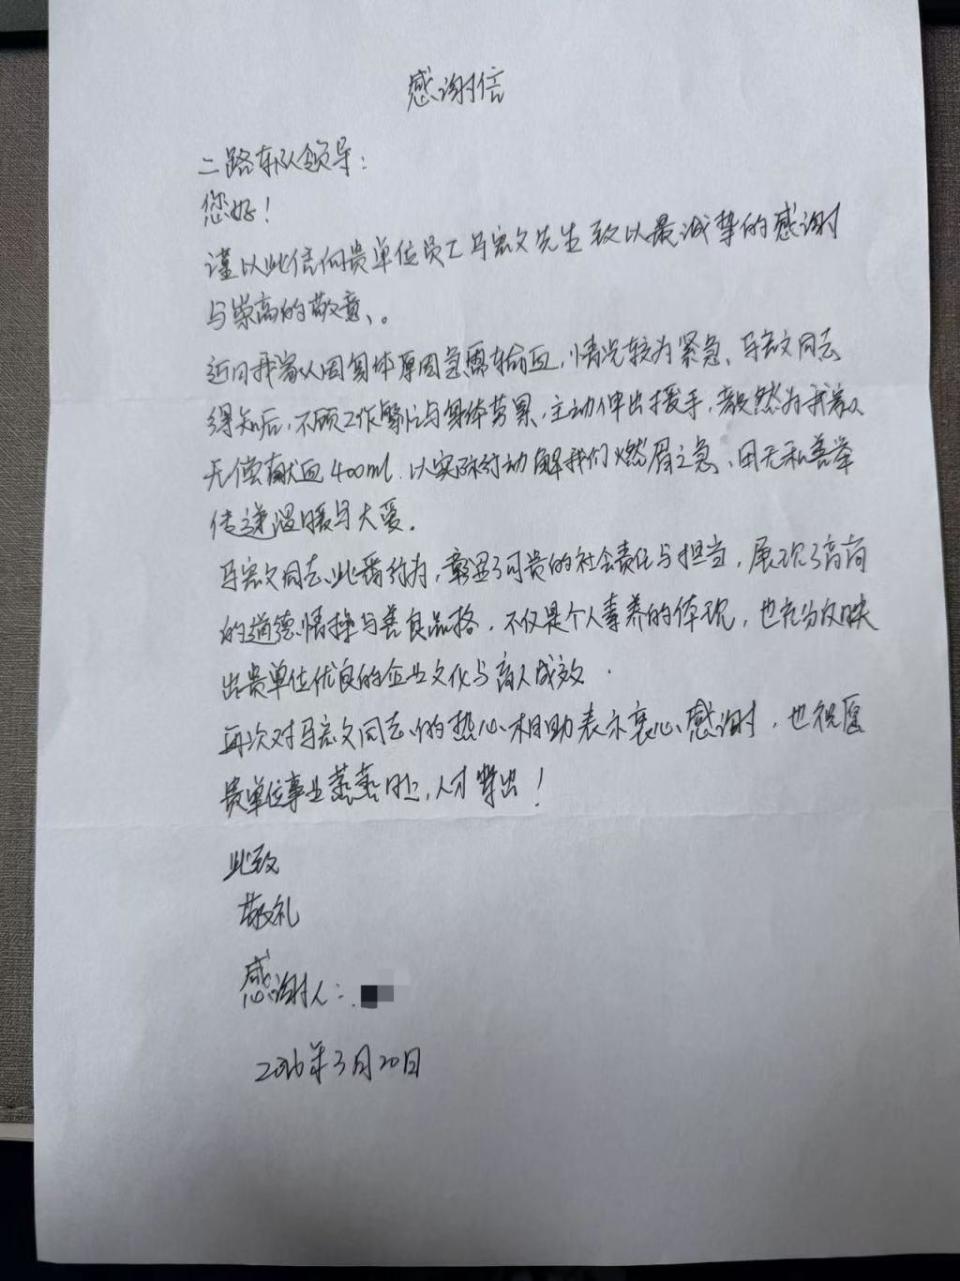 感谢信
二路车队领导：
您好！
谨以此信向贵单位员工马宏文先生致以最诚挚的感谢
与崇高的敬意、。
近日我家人因身体原因急需输血，情况较为紧急、马宏文同志
得知后，不顾工作繁忙与身体劳累，主动伸出援手，毅然为我家人
无偿献血400ml.以实际行动解我们燃眉之急、用无私善举
传递温暖与大爱.
马宏文同志、此番行为，彰显了可贵的社会责任与担当，展现了高尚
的道德情操与善良品格．不仅是个人素养的体现，也充分反映
出贵单位优良的企业文化与育人成效．
再次对马宏文同志、的热心相助表示衷心感谢，也祝愿
贵单位事业蒸蒸日上，人才辈出！
此致
敬礼
感谢人：
2026年3月20日